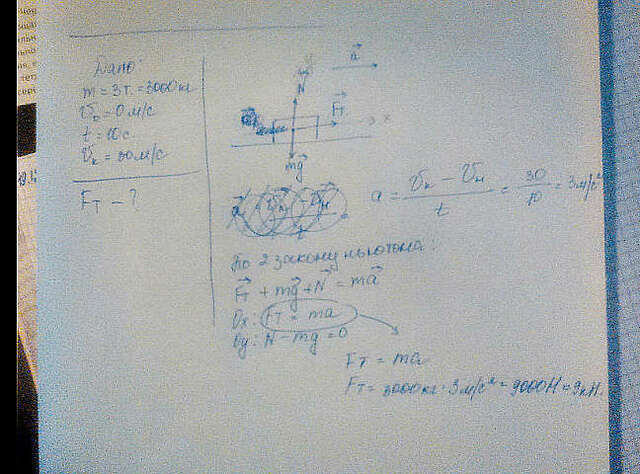 Дано:
m = 3т. = 3000кг
V₀ = 0 м/с
t = 10с
Vк = 30 м/с
Fт – ?
N
a
Fт
x
mg
a = (Vк – Vн)/t = 30/10 = 3 м/с²
По 2 закону ньютона:
Fт + mg + N = ma
Ox: Fт = ma
Oy: N – mg = 0
Fт = ma
Fт = 3000кг · 3 м/с² = 9000Н = 9кН.